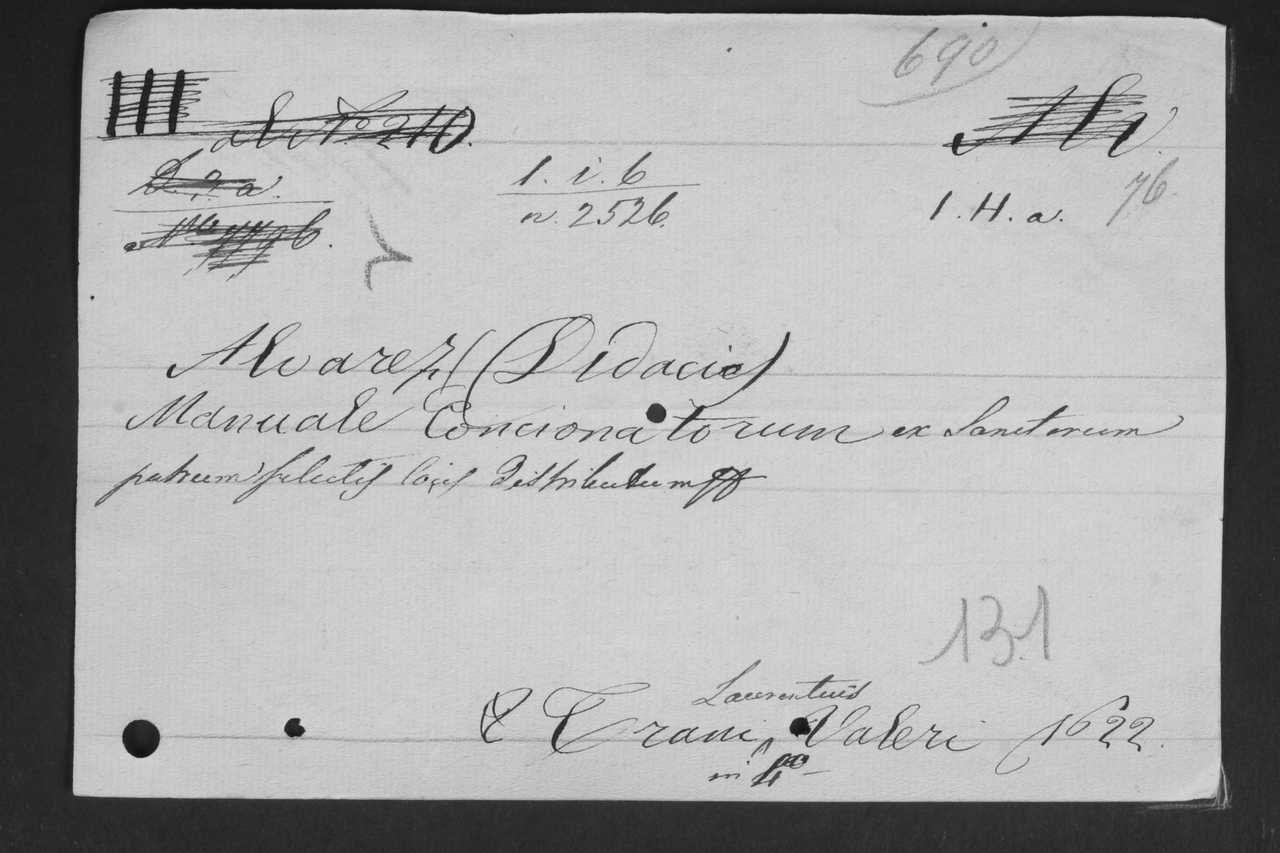 690
No 210.
Al
1. i. 6
n. 2526.
1. H. a.
76.
Alvarez (Didacio)
Manuale Concionatorum ex Sanctorum
patrum selectis locis distributum
131
Laurentius
Trani Valeri 1622.
in 4to